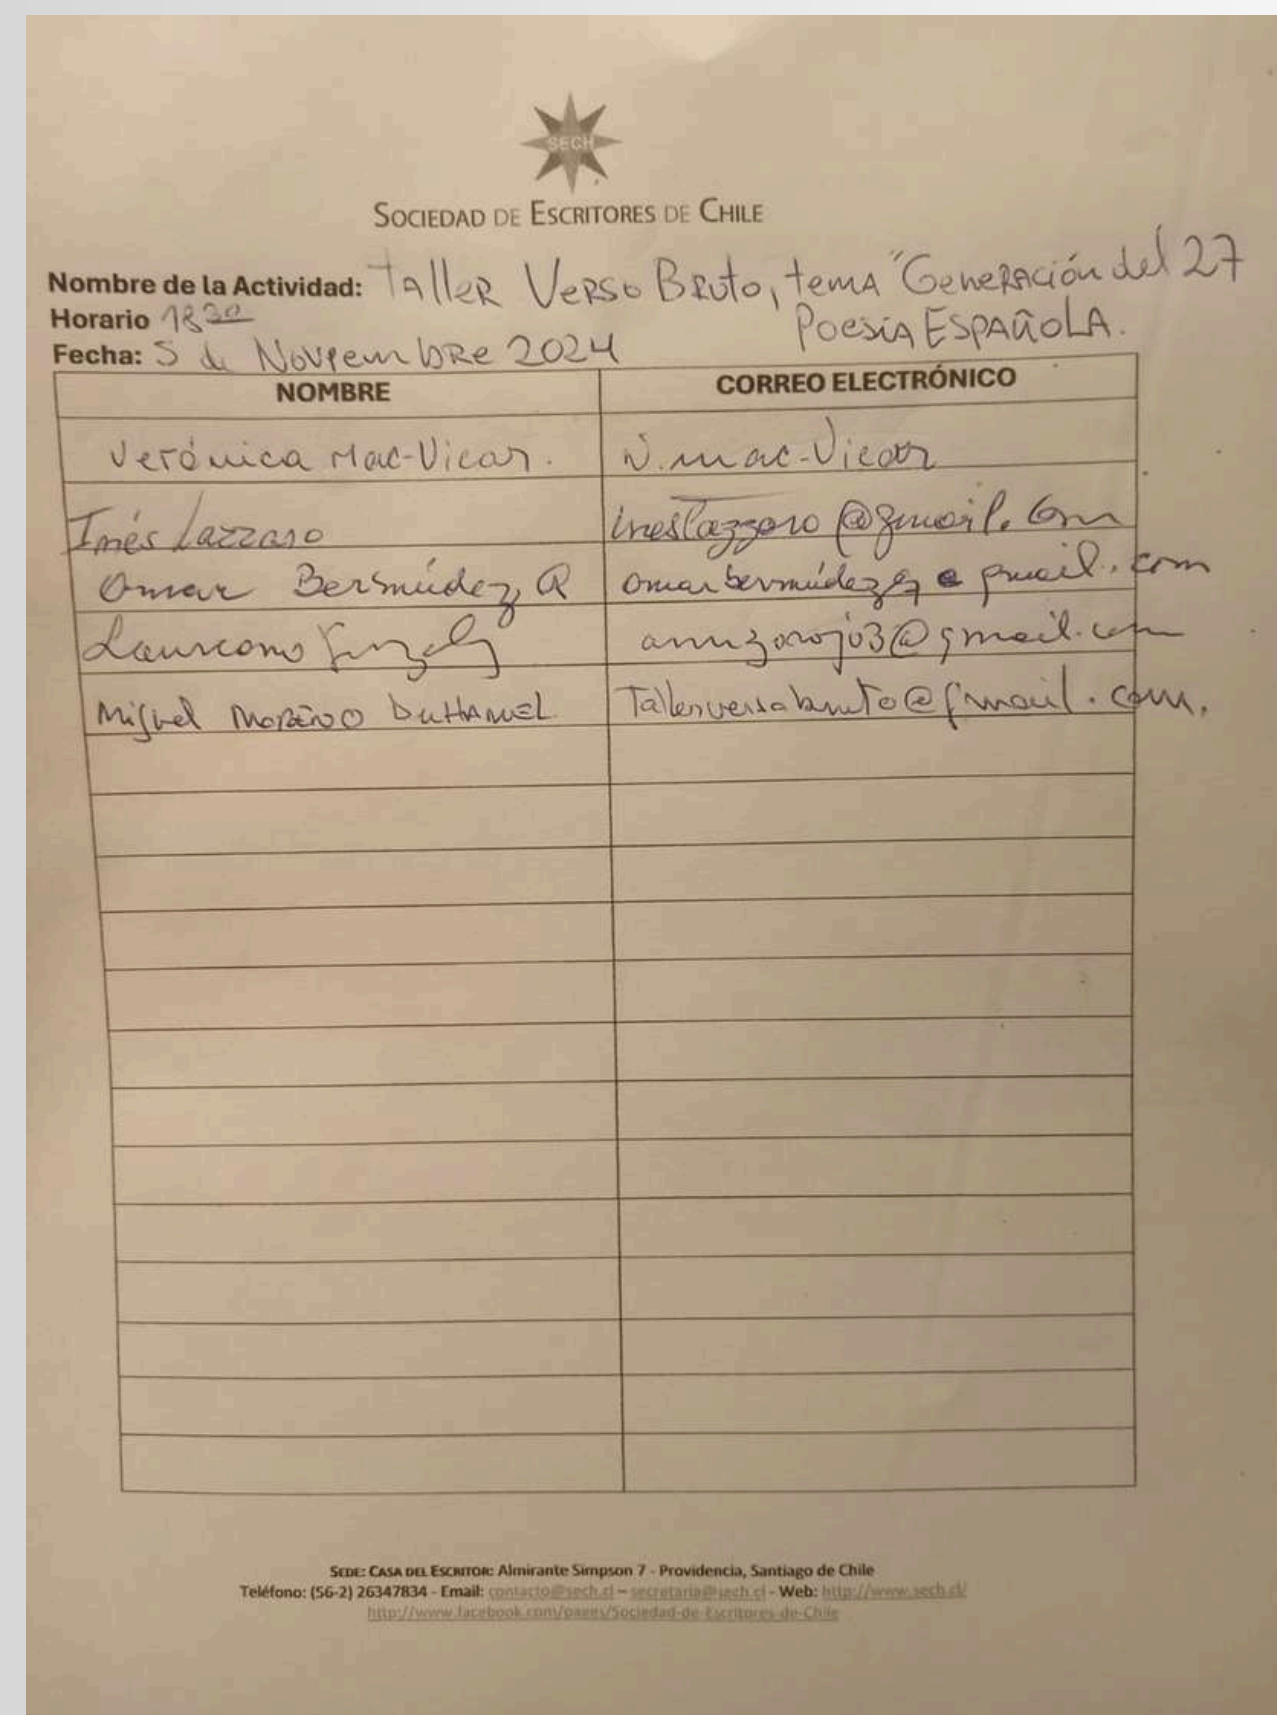 SECH
SOCIEDAD DE ESCRITORES DE CHILE
Nombre de la Actividad: Taller Verso Bruto, tema "Generación del 27
Horario 18³⁰ Poesía Española.
Fecha: 5 de Noviembre 2024
NOMBRE CORREO ELECTRÓNICO
Verónica Mac-Vicar. V.mac-Vicar
Inés Lazzaro ineslazzaro@gmail.com
Omar Bermúdez Q @gmail.com
@gmail.com
Miguel Moreno Duhamel Tallerversobruto@gmail.com.
SEDE: CASA DEL ESCRITOR: Almirante Simpson 7 - Providencia, Santiago de Chile
Teléfono: (56-2) 26347834 - Email: contacto@sech.cl – secretaria@sech.cl - Web: http://www.sech.cl/
http://www.facebook.com/pages/Sociedad-de-Escritores-de-Chile